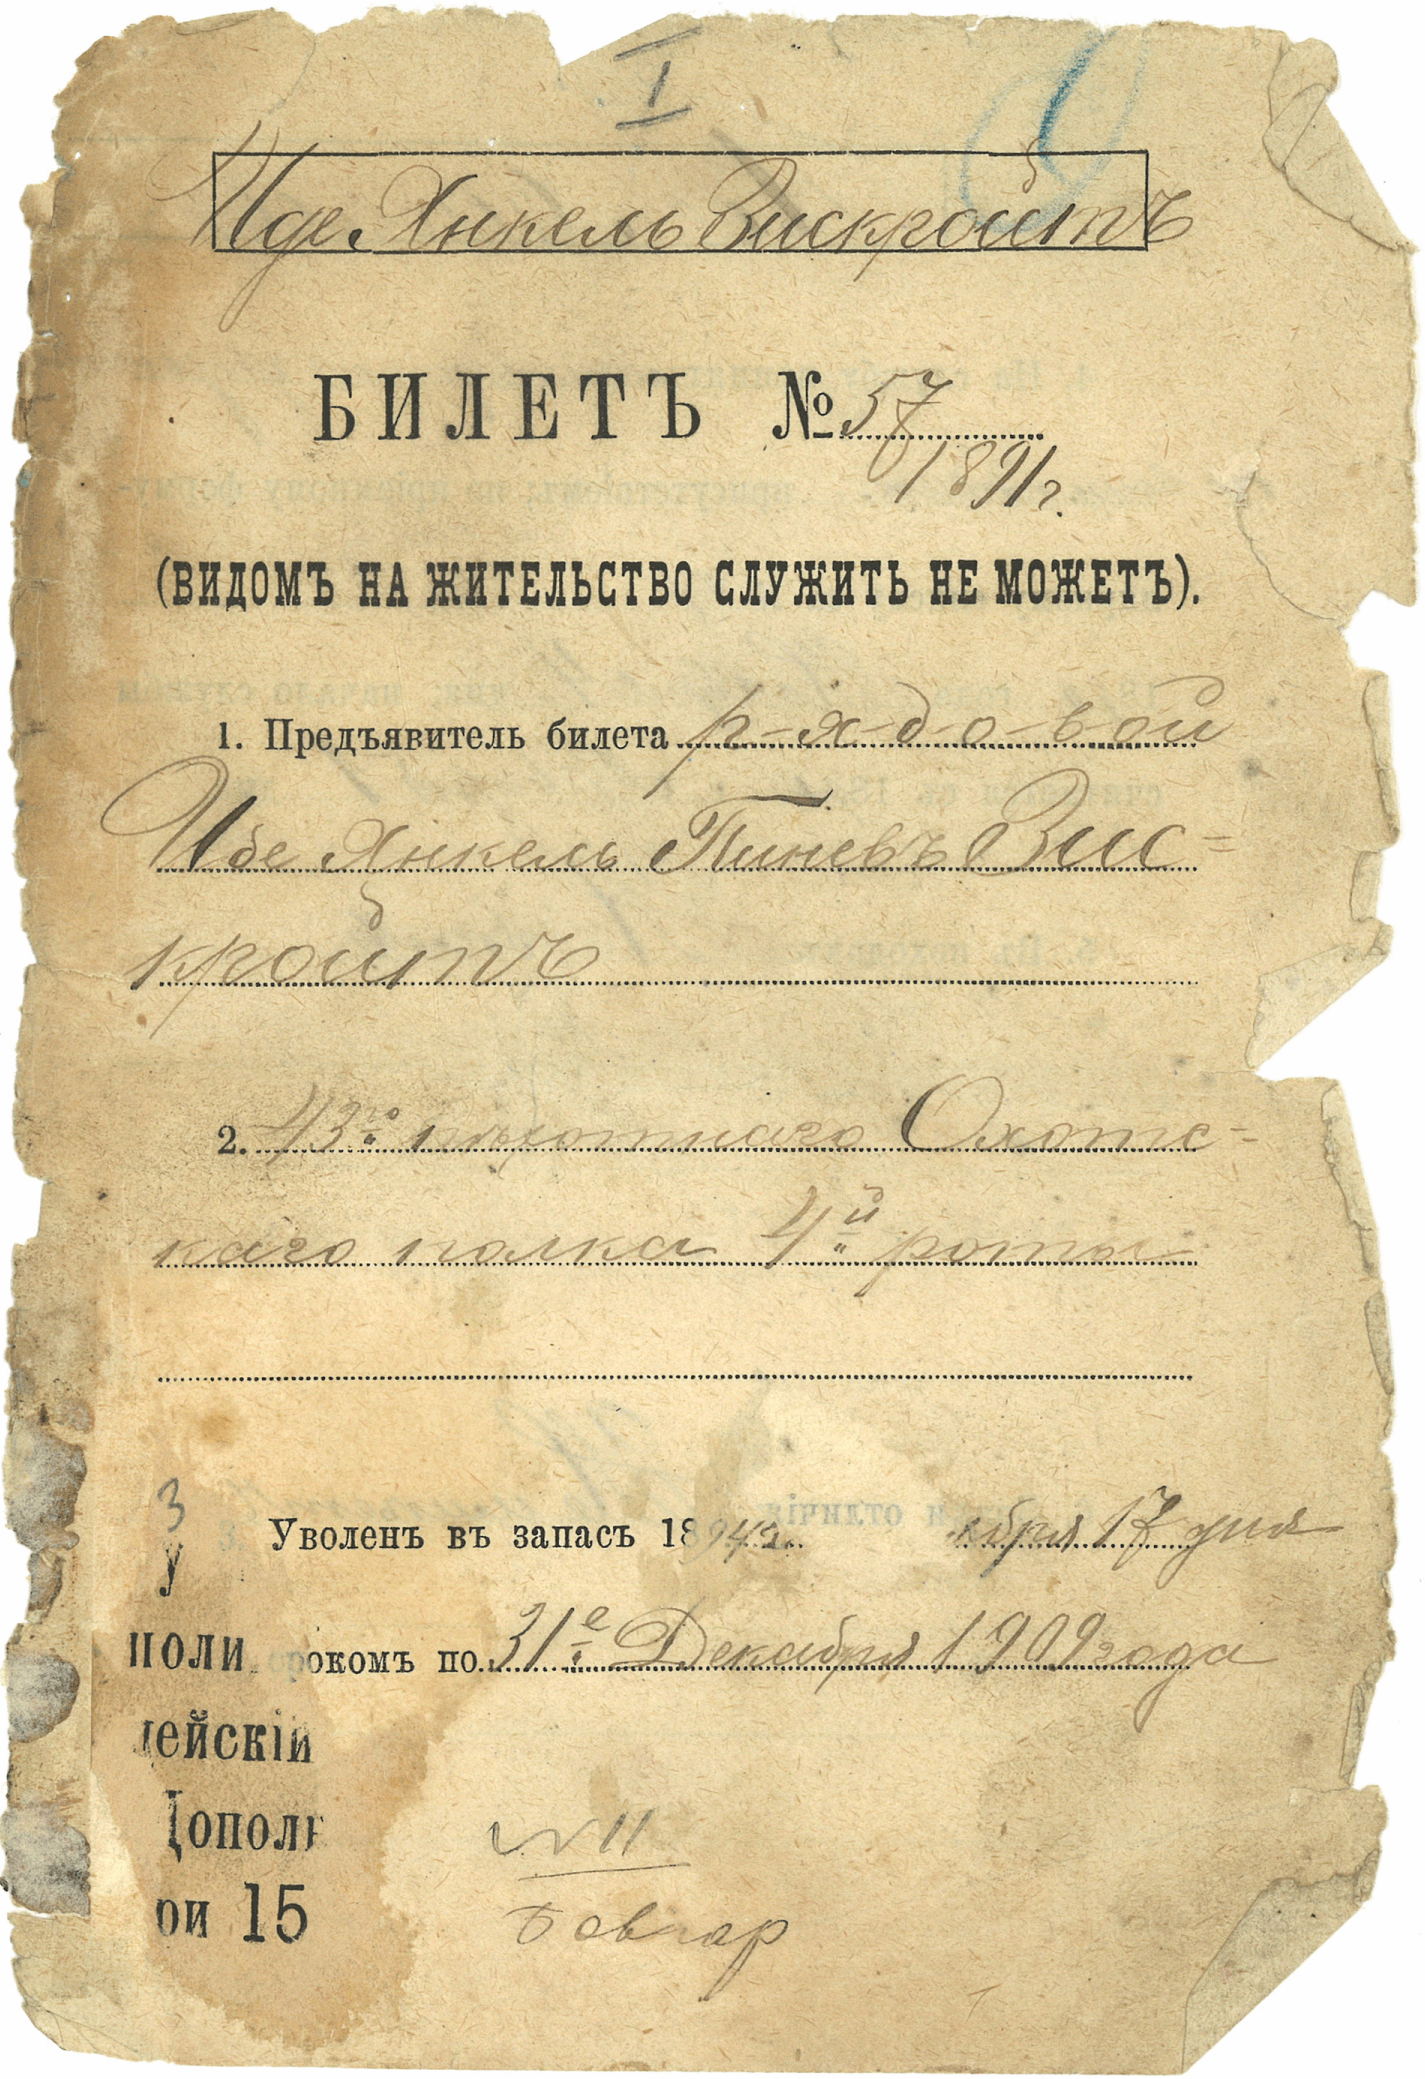 I
Иде Янкель Вискройтъ
БИЛЕТЪ № 57
1891 г.
(ВИДОМЪ НА ЖИТЕЛЬСТВО СЛУЖИТЬ НЕ МОЖЕТЪ).
1. Предъявитель билета р-я-д-о-в-ой
Иде Янкель Пиневъ Вис=
кройтъ
2. 43го пѣхотнаго Охотс-
каго полка 4й роты
3
3. Уволенъ въ запасъ 1894 г. ября 17 дня
у
ПОЛИ срокомъ по 31е Декабря 1909 года
цейскій
Дополн
№ 11
ри 15